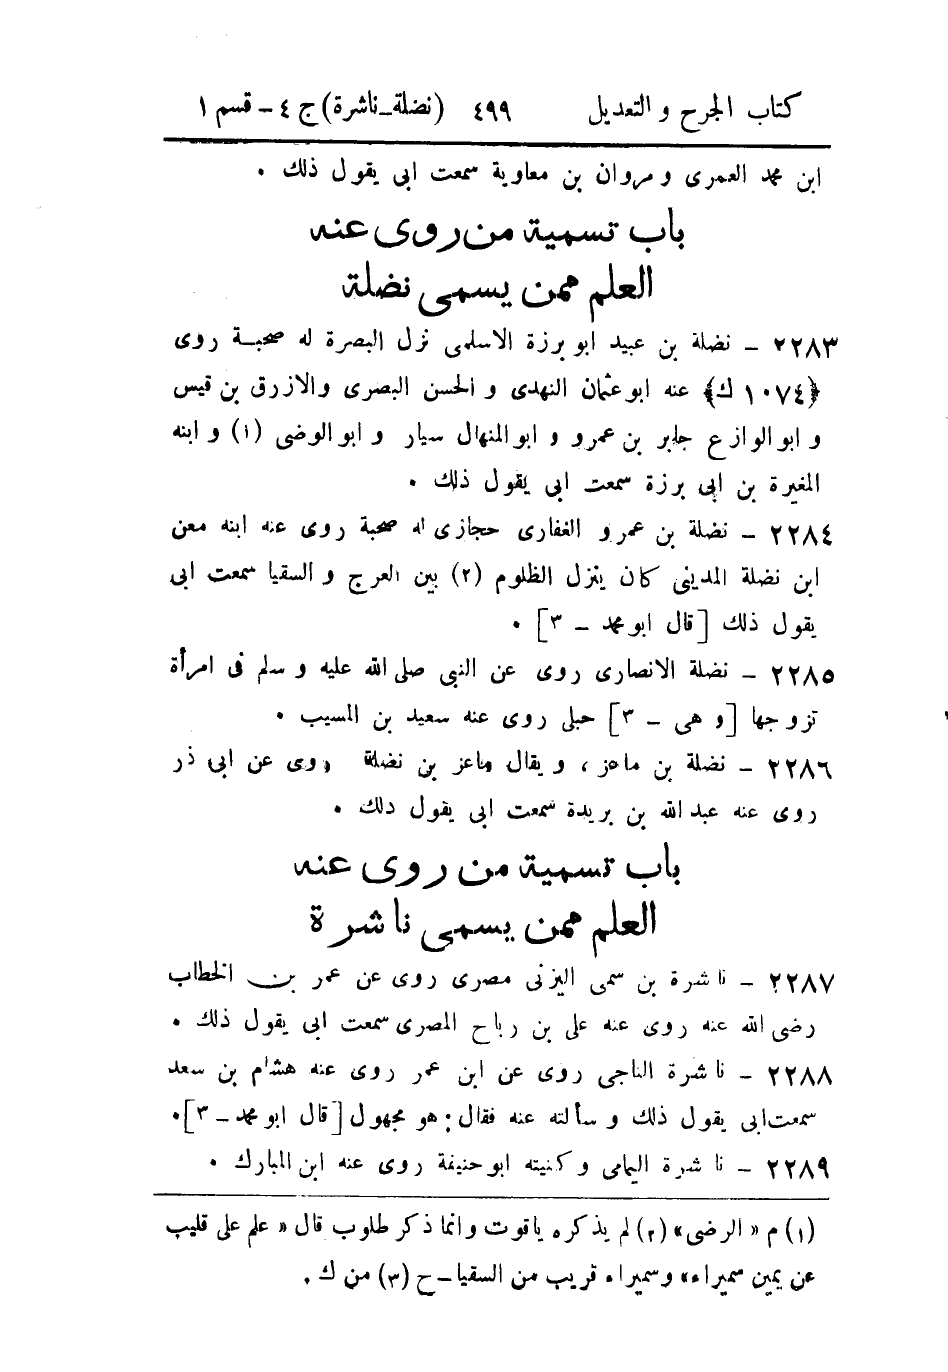 كتاب الجرح و التعديل ٤٩٩ (نضلة-ناشرة) ج ٤ - قسم ١
ابن محمد العمرى و مروان بن معاوية سمعت ابى يقول ذلك .
باب تسمية من روى عنه
العلم ممن يسمى نضلة
٢٢٨٣ - نضلة بن عبيد ابو برزة الاسلمى نزل البصرة له صحبة روى
﴿١٠٧٤ ك﴾ عنه ابو عثمان النهدى و الحسن البصرى والازرق بن قيس
و ابو الوازع جابر بن عمرو و ابو المنهال سيار و ابو الوضى (١) و ابنه
المغيرة بن ابى برزة سمعت ابى يقول ذلك .
٢٢٨٤ - نضلة بن عمرو الغفارى حجازى له صحبة روى عنه ابنه معن
ابن نضلة المدينى كان ينزل الظلوم (٢) بين العرج و السقيا سمعت ابى
يقول ذلك [قال ابو محمد - ٣] .
٢٢٨٥ - نضلة الانصارى روى عن النبى صلى الله عليه و سلم فى امرأة
تزوجها [و هى - ٣] حبلى روى عنه سعيد بن المسيب .
٢٢٨٦ - نضلة بن ماعز ، و يقال ماعز بن نضلة روى عن ابى ذر
روى عنه عبد الله بن بريدة سمعت ابى يقول ذلك .
باب تسمية من روى عنه
العلم ممن يسمى ناشرة
٢٢٨٧ - ناشرة بن سمى اليزنى مصرى روى عن عمر بن الخطاب
رضى الله عنه روى عنه على بن رباح المصرى سمعت ابى يقول ذلك .
٢٢٨٨ - ناشرة الناجى روى عن ابن عمر روى عنه هشام بن سعد
سمعت ابى يقول ذلك و سألته عنه فقال : هو مجهول [قال ابو محمد - ٣].
٢٢٨٩ - ناشرة اليمامى و كنيته ابو حنيفة روى عنه ابن المبارك .
(١) م « الرضى» (٢) لم يذكره ياقوت وانما ذكر طلوب قال « علم على قليب
عن يمين سميراء» وسميراء قريب من السقيا - ح (٣) من ك .